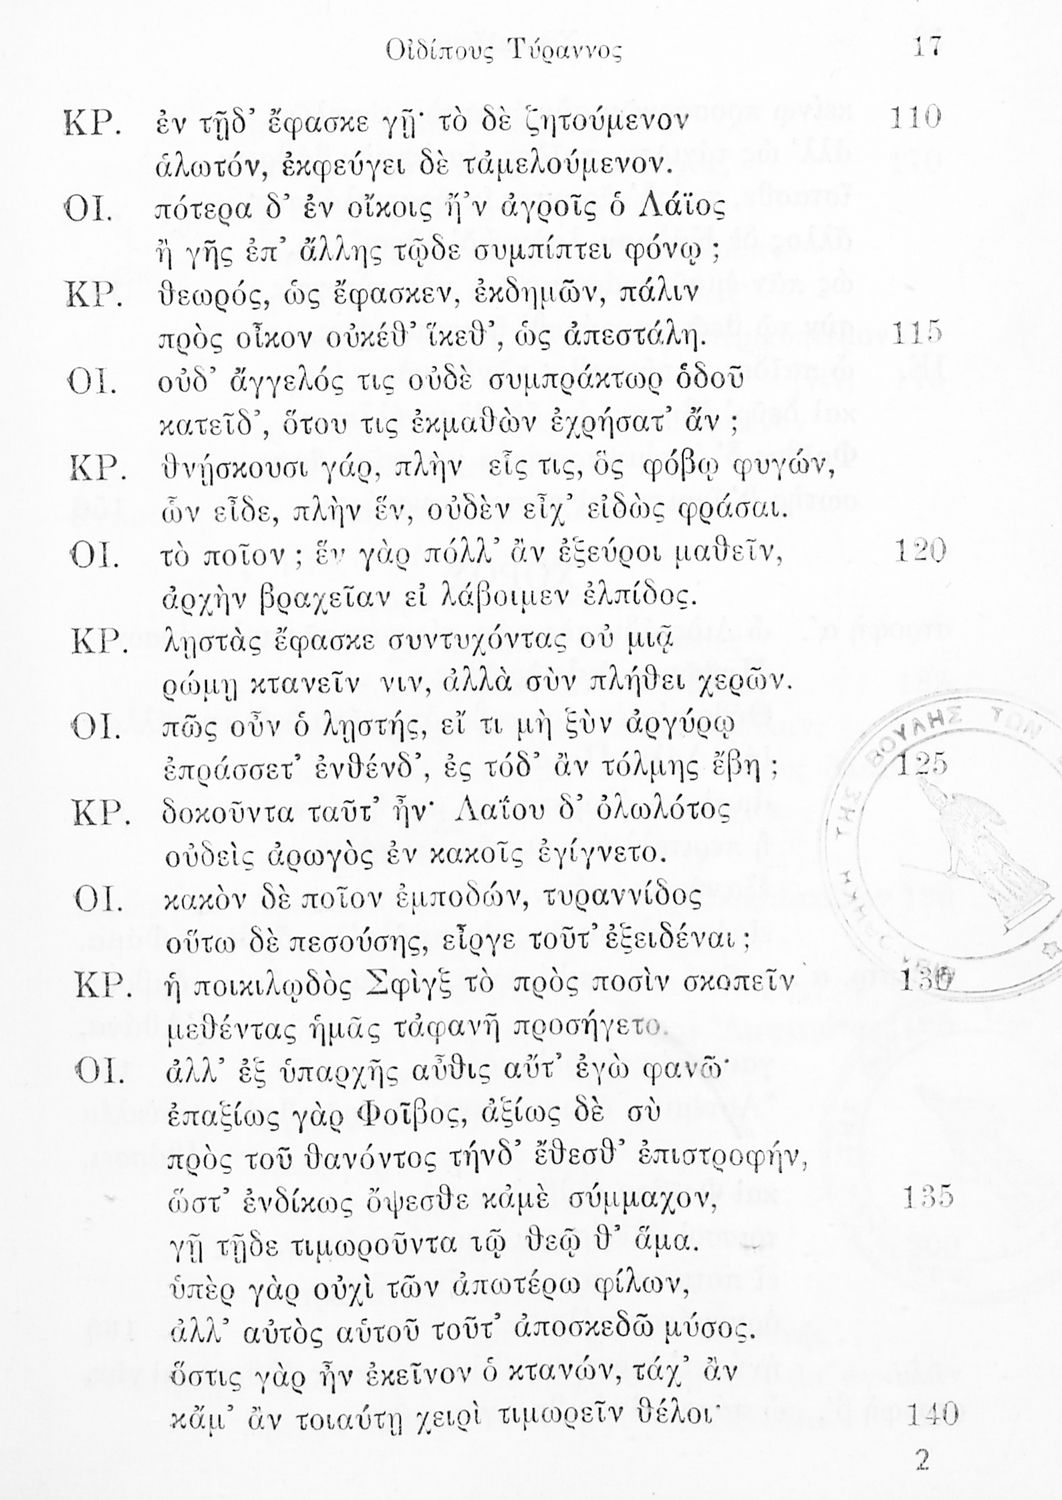 Οἰδίπους Τύραννος 17
ΚΡ. ἐν τῇδ’ ἔφασκε γῇ· τὸ δὲ ζητούμενον 110
ἁλωτόν, ἐκφεύγει δὲ τἀμελούμενον.
ΟΙ. πότερα δ’ ἐν οἴκοις ἢ ’ν ἀγροῖς ὁ Λάϊος
ἢ γῆς ἐπ’ ἄλλης τῷδε συμπίπτει φόνῳ ;
ΚΡ. θεωρός, ὡς ἔφασκεν, ἐκδημῶν, πάλιν
πρὸς οἶκον οὐκέθ’ ἵκεθ’, ὡς ἀπεστάλη. 115
ΟΙ. οὐδ’ ἄγγελός τις οὐδὲ συμπράκτωρ ὁδοῦ
κατεῖδ’, ὅτου τις ἐκμαθὼν ἐχρήσατ’ ἄν ;
ΚΡ. θνῄσκουσι γάρ, πλὴν εἷς τις, ὃς φόβῳ φυγών,
ὧν εἶδε, πλὴν ἕν, οὐδὲν εἶχ’ εἰδὼς φράσαι.
ΟΙ. τὸ ποῖον ; ἓν γὰρ πόλλ’ ἂν ἐξεύροι μαθεῖν, 120
ἀρχὴν βραχεῖαν εἰ λάβοιμεν ἐλπίδος.
ΚΡ. λῃστὰς ἔφασκε συντυχόντας οὐ μιᾷ
ρώμῃ κτανεῖν νιν, ἀλλὰ σὺν πλήθει χερῶν.
ΟΙ. πῶς οὖν ὁ λῃστής, εἴ τι μὴ ξὺν ἀργύρῳ
ἐπράσσετ’ ἐνθένδ’, ἐς τόδ’ ἂν τόλμης ἔβη ; 125
ΚΡ. δοκοῦντα ταῦτ’ ἦν· Λαΐου δ’ ὀλωλότος
οὐδεὶς ἀρωγὸς ἐν κακοῖς ἐγίγνετο.
ΟΙ. κακὸν δὲ ποῖον ἐμποδών, τυραννίδος
οὕτω δὲ πεσούσης, εἶργε τοῦτ’ ἐξειδέναι ;
ΚΡ. ἡ ποικιλῳδὸς Σφὶγξ τὸ πρὸς ποσὶν σκοπεῖν 130
μεθέντας ἡμᾶς τἀφανῆ προσήγετο.
ΟΙ. ἀλλ’ ἐξ ὑπαρχῆς αὖθις αὔτ’ ἐγὼ φανῶ·
ἐπαξίως γὰρ Φοῖβος, ἀξίως δὲ σὺ
πρὸς τοῦ θανόντος τήνδ’ ἔθεσθ’ ἐπιστροφήν,
ὥστ’ ἐνδίκως ὄψεσθε κἀμὲ σύμμαχον, 135
γῇ τῇδε τιμωροῦντα τῷ θεῷ θ’ ἅμα.
ὑπὲρ γὰρ οὐχὶ τῶν ἀπωτέρω φίλων,
ἀλλ’ αὐτὸς αὑτοῦ τοῦτ’ ἀποσκεδῶ μύσος.
ὅστις γὰρ ἦν ἐκεῖνον ὁ κτανών, τάχ’ ἂν
κἄμ’ ἂν τοιαύτῃ χειρὶ τιμωρεῖν θέλοι· 140
2
ΤΗΣ ΒΟΥΛΗΣ ΤΩΝ